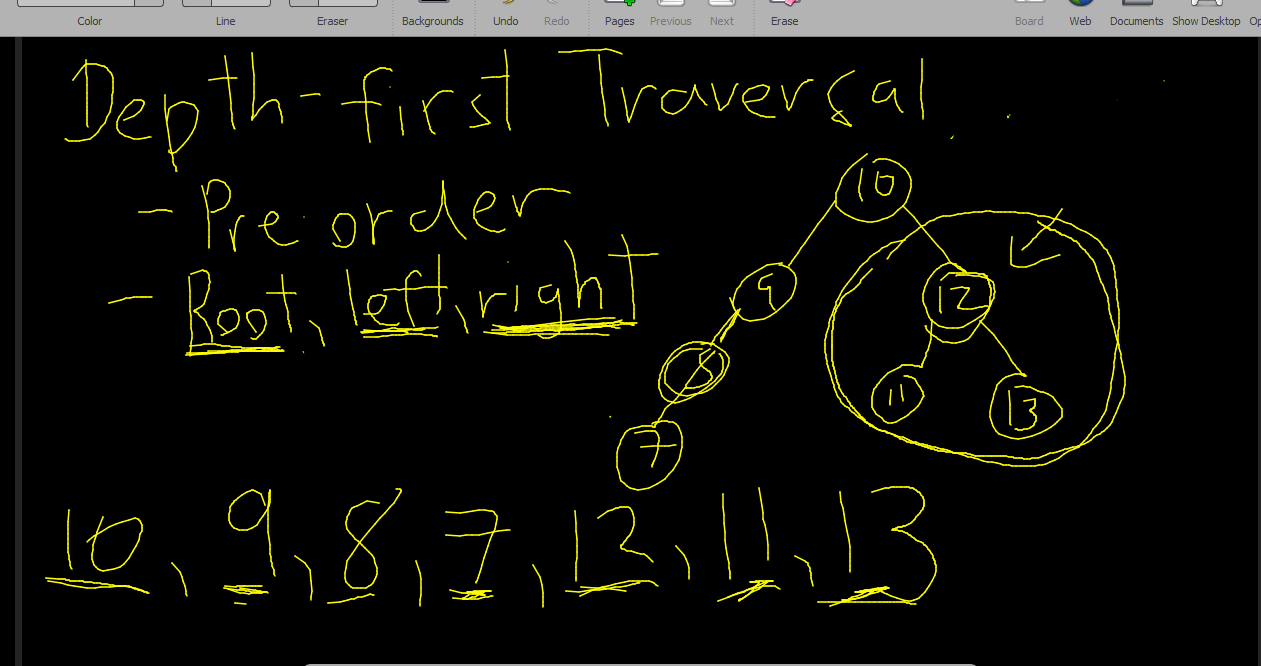 Color Line Eraser Backgrounds Undo Redo Pages Previous Next Erase Board Web Documents Show Desktop Op
Depth-first Traversal
- Preorder
- Root, left, right
10
9
12
8
11
13
7
10, 9, 8, 7, 12, 11, 13